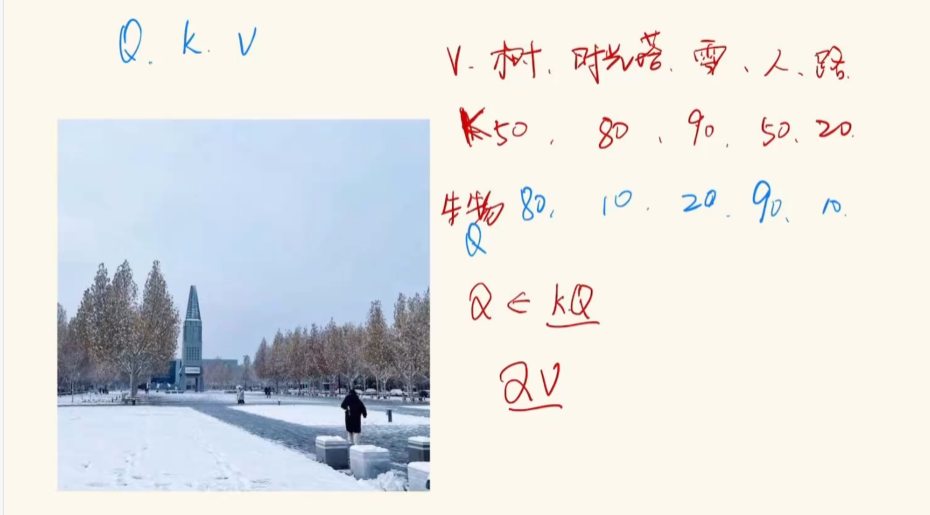 Q. K. V
V. 树、时光塔、雪、人、路
K 50、80、90、50、20.
生物 80、10、20、90、10.
Q
Q ∈ KQ
QV